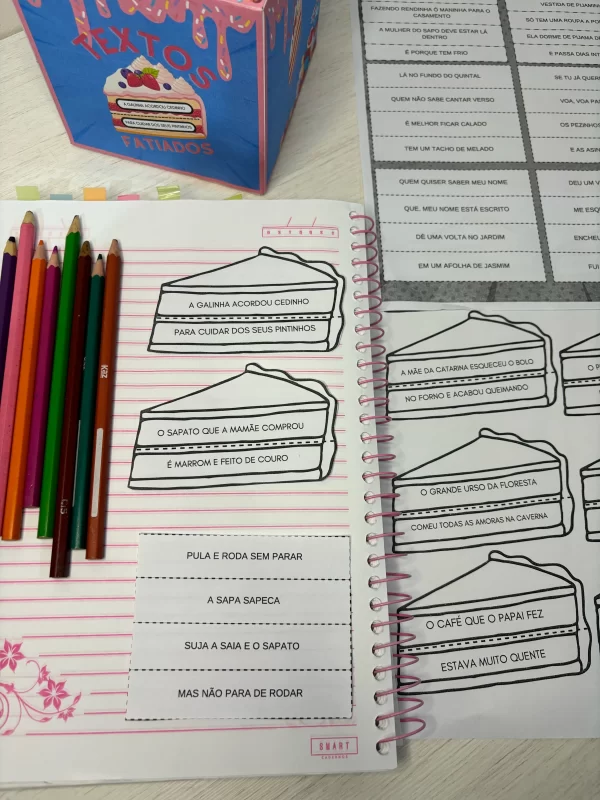 TEXTOS
A GALINHA ACORDOU CEDINHO
PARA CUIDAR DOS SEUS PINTINHOS
FATIADOS
FAZENDO RENDINHA O MANINHA PARA O
CASAMENTO
A MULHER DO SAPO DEVE ESTAR LÁ
DENTRO
É PORQUE TEM FRIO
VESTIDA DE
SÓ TEM UMA ROUPA A
ELA DORME DE PIJAMA
E PASSA DIAS
LÁ NO FUNDO DO QUINTAL
QUEM NÃO SABE CANTAR VERSO
É MELHOR FICAR CALADO
TEM UM TACHO DE MELADO
SE TU JÁ
VOA, VOA
OS
E AS
QUEM QUISER SABER MEU NOME
QUE, MEU NOME ESTÁ ESCRITO
DÊ UMA VOLTA NO JARDIM
EM UM AFOLHA DE JASMIM
DEU UM
ME
FUI
OUTUBRO
A GALINHA ACORDOU CEDINHO
PARA CUIDAR DOS SEUS PINTINHOS
O SAPATO QUE A MAMÃE COMPROU
É MARROM E FEITO DE COURO
PULA E RODA SEM PARAR
A SAPA SAPECA
SUJA A SAIA E O SAPATO
MAS NÃO PARA DE RODAR
SMART
A MÃE DA CATARINA ESQUECEU O BOLO
NO FORNO E ACABOU QUEIMANDO
O GRANDE URSO DA FLORESTA
COMEU TODAS AS AMORAS NA CAVERNA
O CAFÉ QUE O PAPAI FEZ
ESTAVA MUITO QUENTE